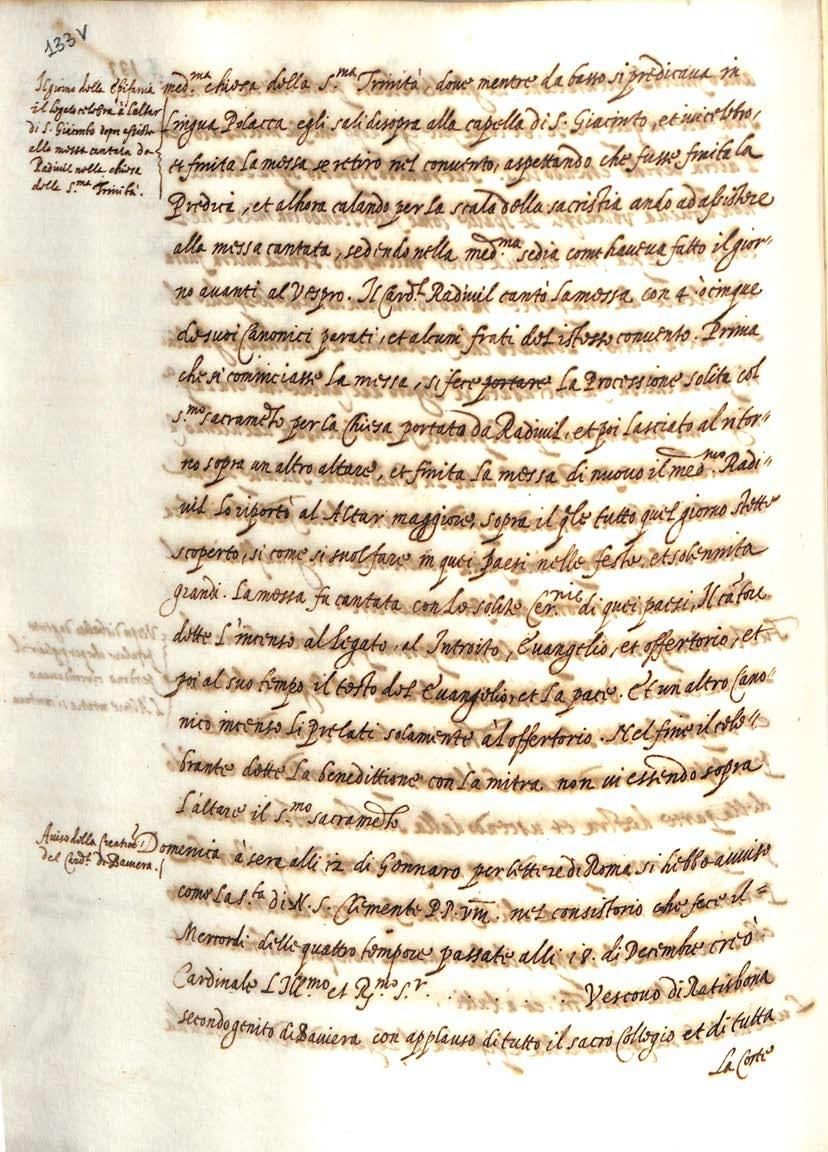 133v
Il giorno della Epifania
il legato celebra à l'altar
di S. Giacinto dopo assiste
alla messa cantata da
Radivil nella chiesa
della S.ma Trinità.
med.ma chiesa della S.ma Trinità, dove mentre da basso si predicava in
lingua Polacca egli sali disopra alla capella di S. Giacinto, et ivi celebro,
et finita la messa se retirò nel convento, aspettando che fusse finita la
Predica, et alhora calando per la scala della sacristia ando ad assistere
alla messa cantata, sedendo nella med.ma sedia come haveva fatto il gior-
no avanti al Vespro. Il Card.l Radivil cantò la messa con 4 ò cinque
de suoi Canonici parati, et alcuni frati del istesso convento. Prima
che si cominciasse la messa, si fece portare la Processione solita col
s.mo sacrameto per la Chiesa portata da Radivil, et poi lasciato al ritor-
no sopra un altro altare, et finita la messa di nuovo il med.mo Radi-
vil lo riportò al Altar maggiore, sopra il qle tutto quel giorno stette
scoperto, si come si suol fare in quei paesi nelle feste, et solennita
grandi. La messa fu cantata con le solite Cer.nie di quei paesi, Il
dette l'incenso al Legato, al Introito, Evangelio, et offertorio, et
poi al suo tempo il testo del Evangelio, et la pace. Et un altro Cano-
nico incenso li prelati solamente àl offertorio. Nel fine il cele-
brante dette la benedittione con la mitra non vi essendo sopra
l'altare il s.mo sacrameto
Aviso della Creatne
del Card.l di Baviera.
Domenica à sera alli 12 di Gennaro per lettere di Roma si hebbe avviso
come la S.ta di N. S. Clemente PP. VIII. nel consistorio che fece il
Mercordi delle quattro tempore passate alli 18. di Decembre creò
Cardinale L'Ill.mo et R.mo S.r . . . . . . Vescovo di Ratisbona
secondogenito di Baviera con applauso di tutto il sacro Collegio et di tutta
la Corte